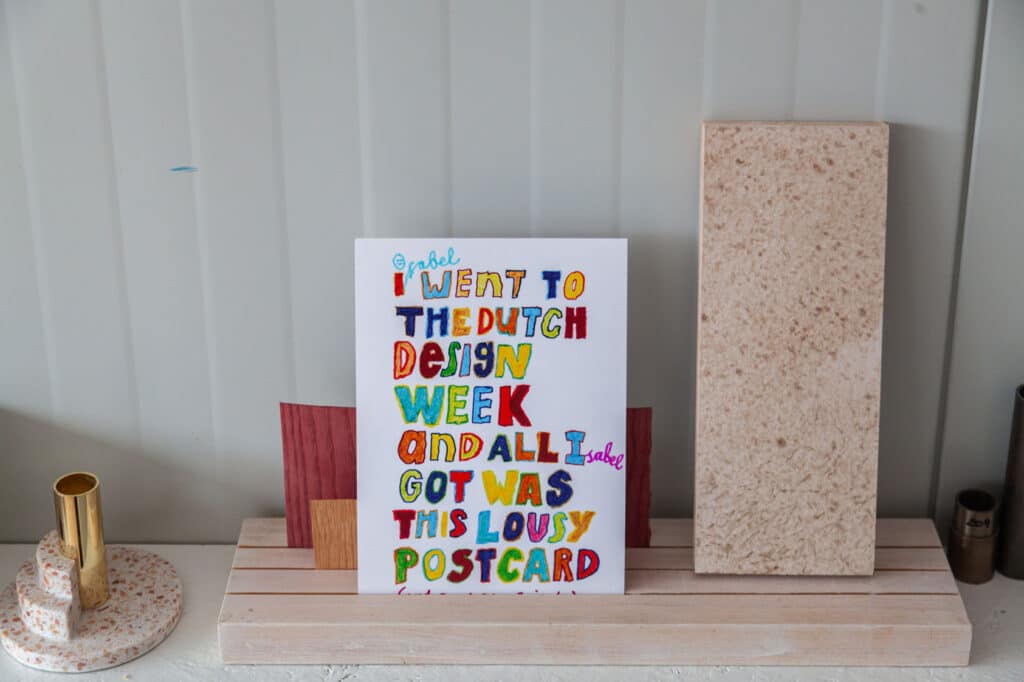 @sabel
I WENT TO
THE DUTCH
DeSIGN
WEEK
anD ALL Isabel
GOT WAS
THIS LOUSY
POSTCARD